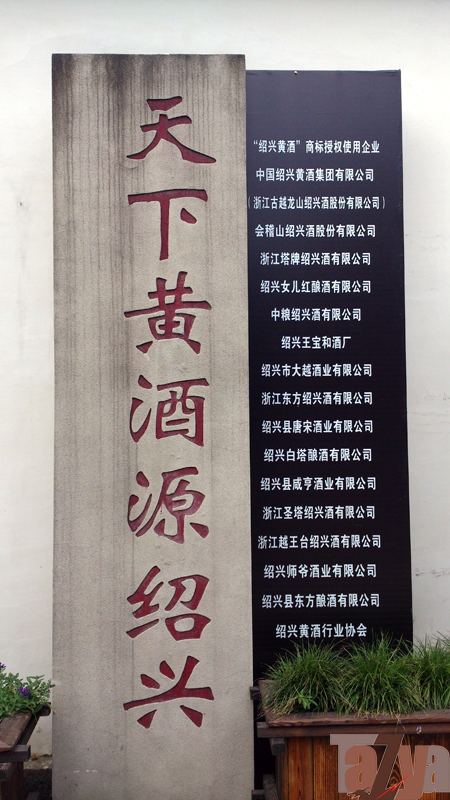 天下黄酒源绍兴
“绍兴黄酒”商标授权使用企业
中国绍兴黄酒集团有限公司
（浙江古越龙山绍兴酒股份有限公司）
会稽山绍兴酒股份有限公司
浙江塔牌绍兴酒有限公司
绍兴女儿红酿酒有限公司
中粮绍兴酒有限公司
绍兴王宝和酒厂
绍兴市大越酒业有限公司
浙江东方绍兴酒有限公司
绍兴县唐宋酒业有限公司
绍兴白塔酿酒有限公司
绍兴县咸亨酒业有限公司
浙江圣塔绍兴酒有限公司
浙江越王台绍兴酒有限公司
绍兴师爷酒业有限公司
绍兴县东方酿酒有限公司
绍兴黄酒行业协会
Ta7ya